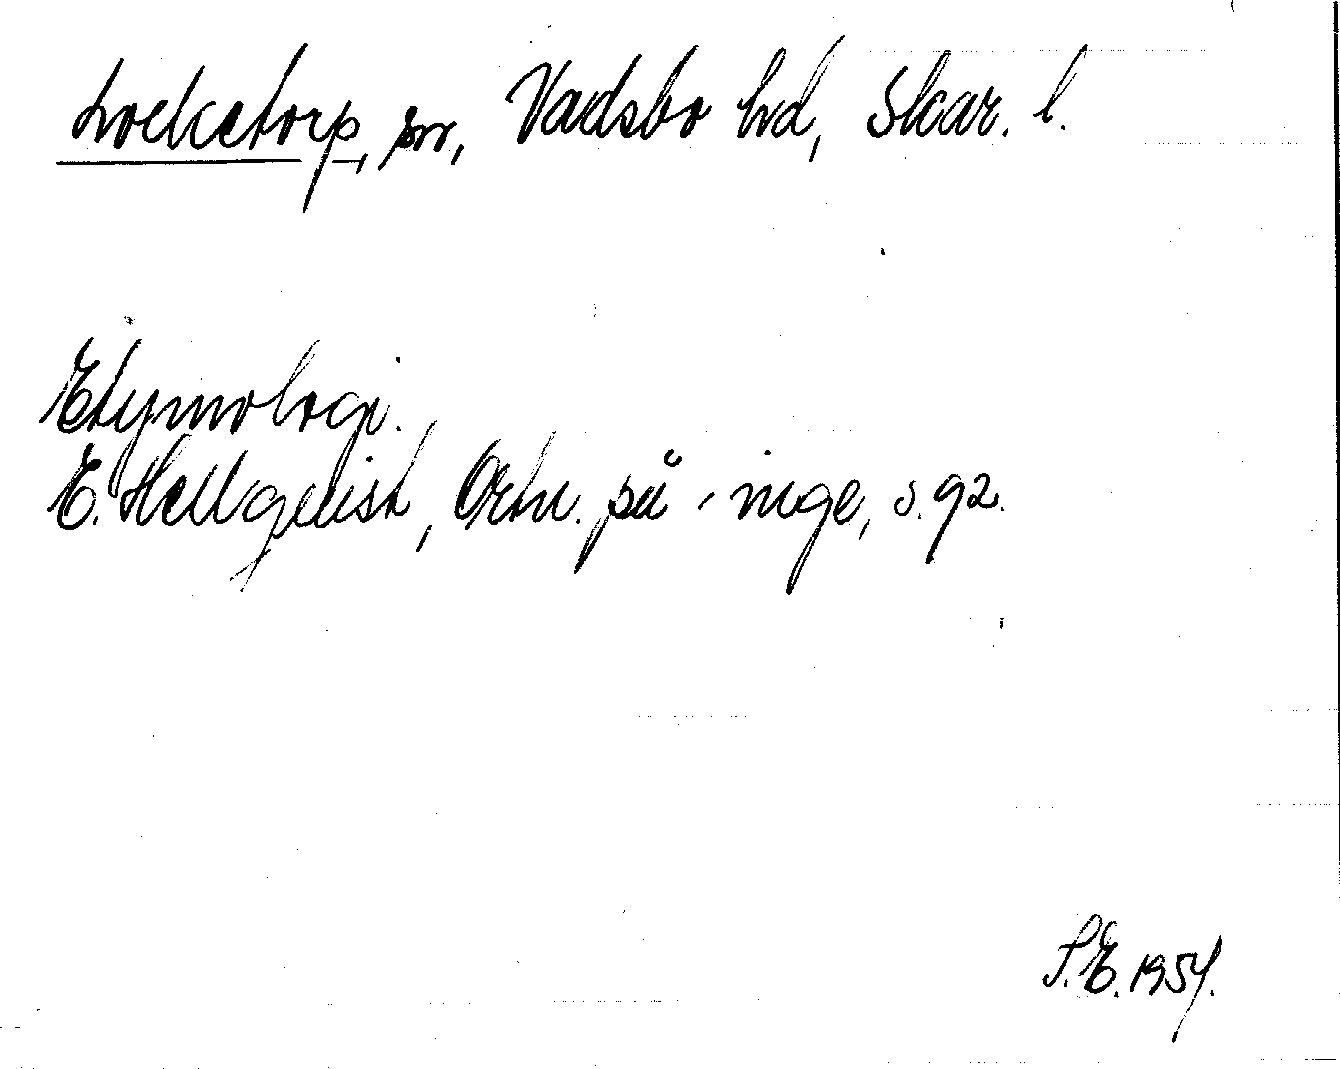 Locketorp, sn, Vadsbo hd, Skar. l.
Etymologi.
E. Hellquist, Ortn. på -inge, s. 92.
S.E. 1954.